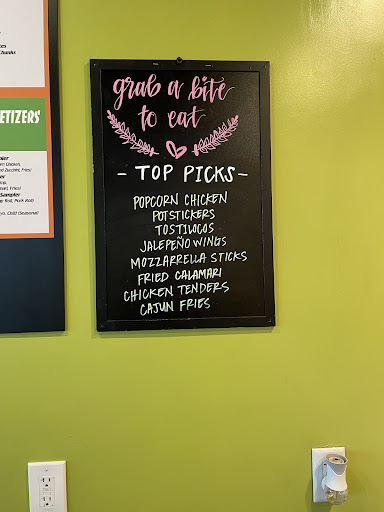 chunks
ETIZERS
Sampler
grab a bite
to eat
- TOP PICKS -
POPCORN CHICKEN
POTSTICKERS
TOSTILOCOS
JALEPEÑO WINGS
MOZZARRELLA STICKS
FRIED CALAMARI
CHICKEN TENDERS
CAJUN FRIES